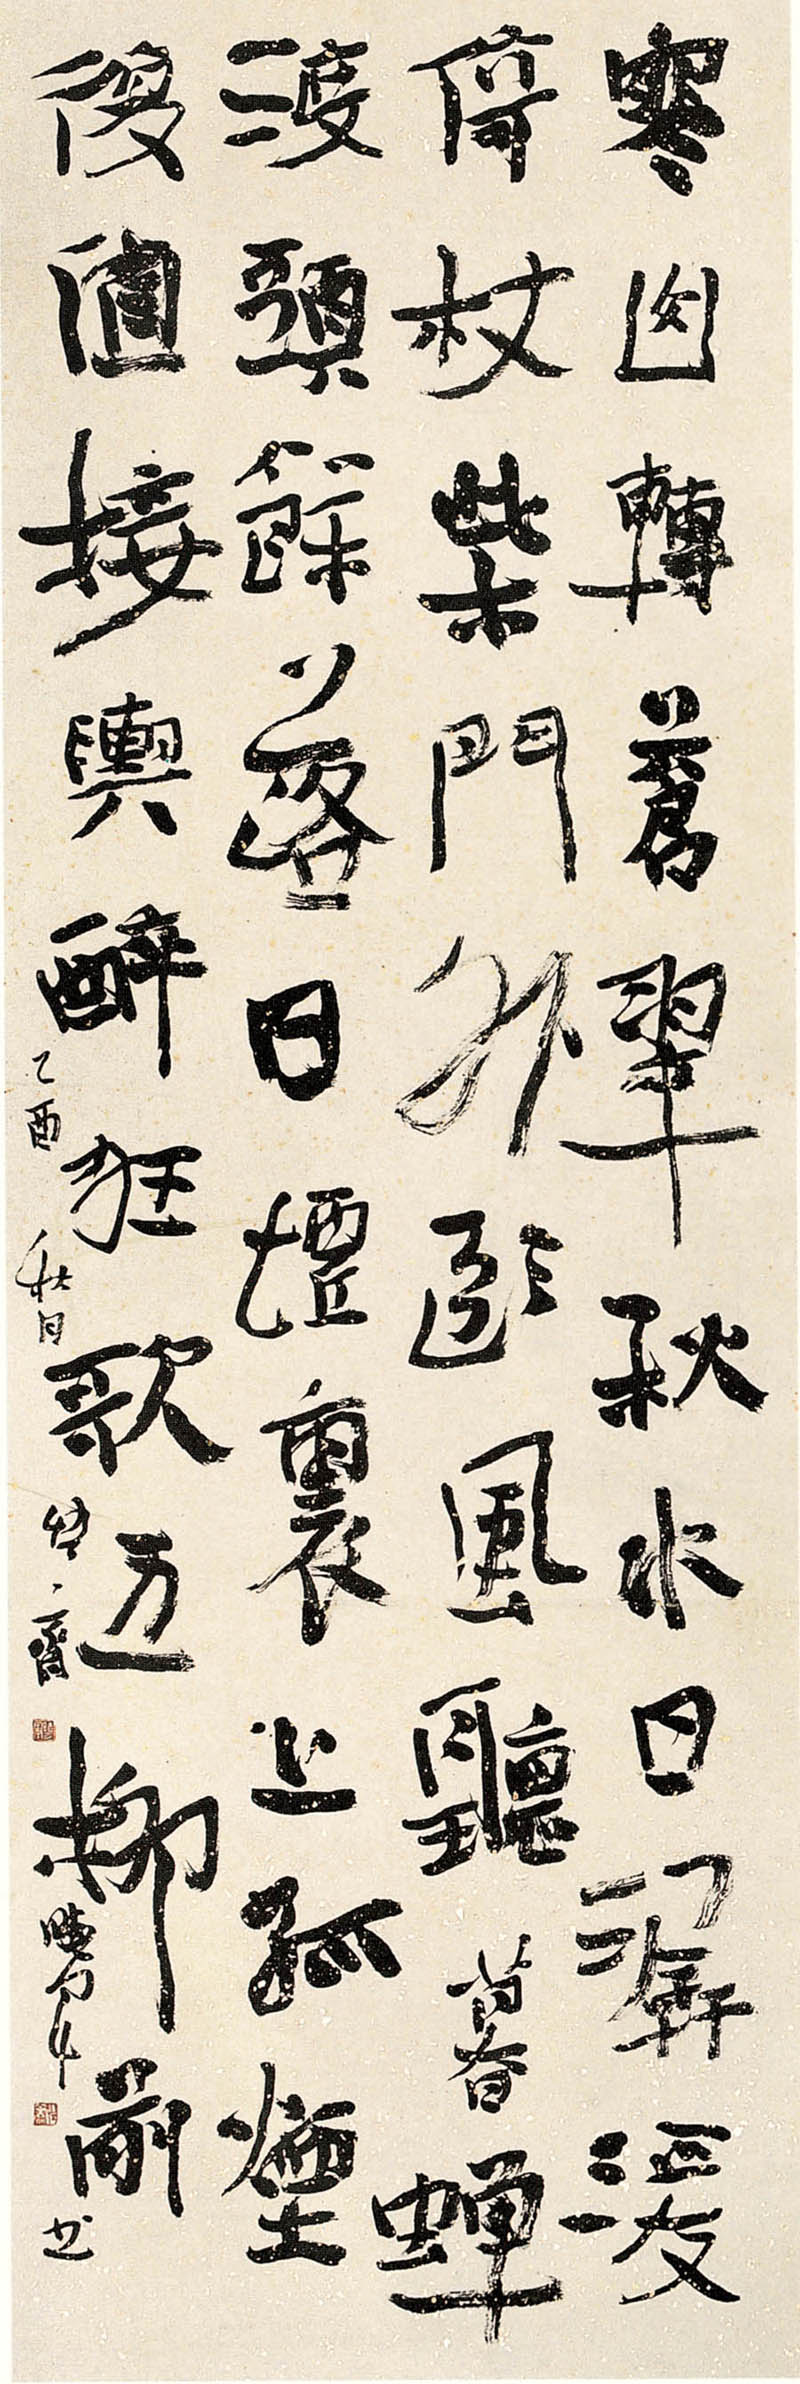 寒山轉蒼翠秋水日潺湲
倚杖柴門外臨風聽暮蟬
渡頭餘落日墟裏上孤煙
復值接輿醉狂歌五柳前
乙酉秋日 齋 书